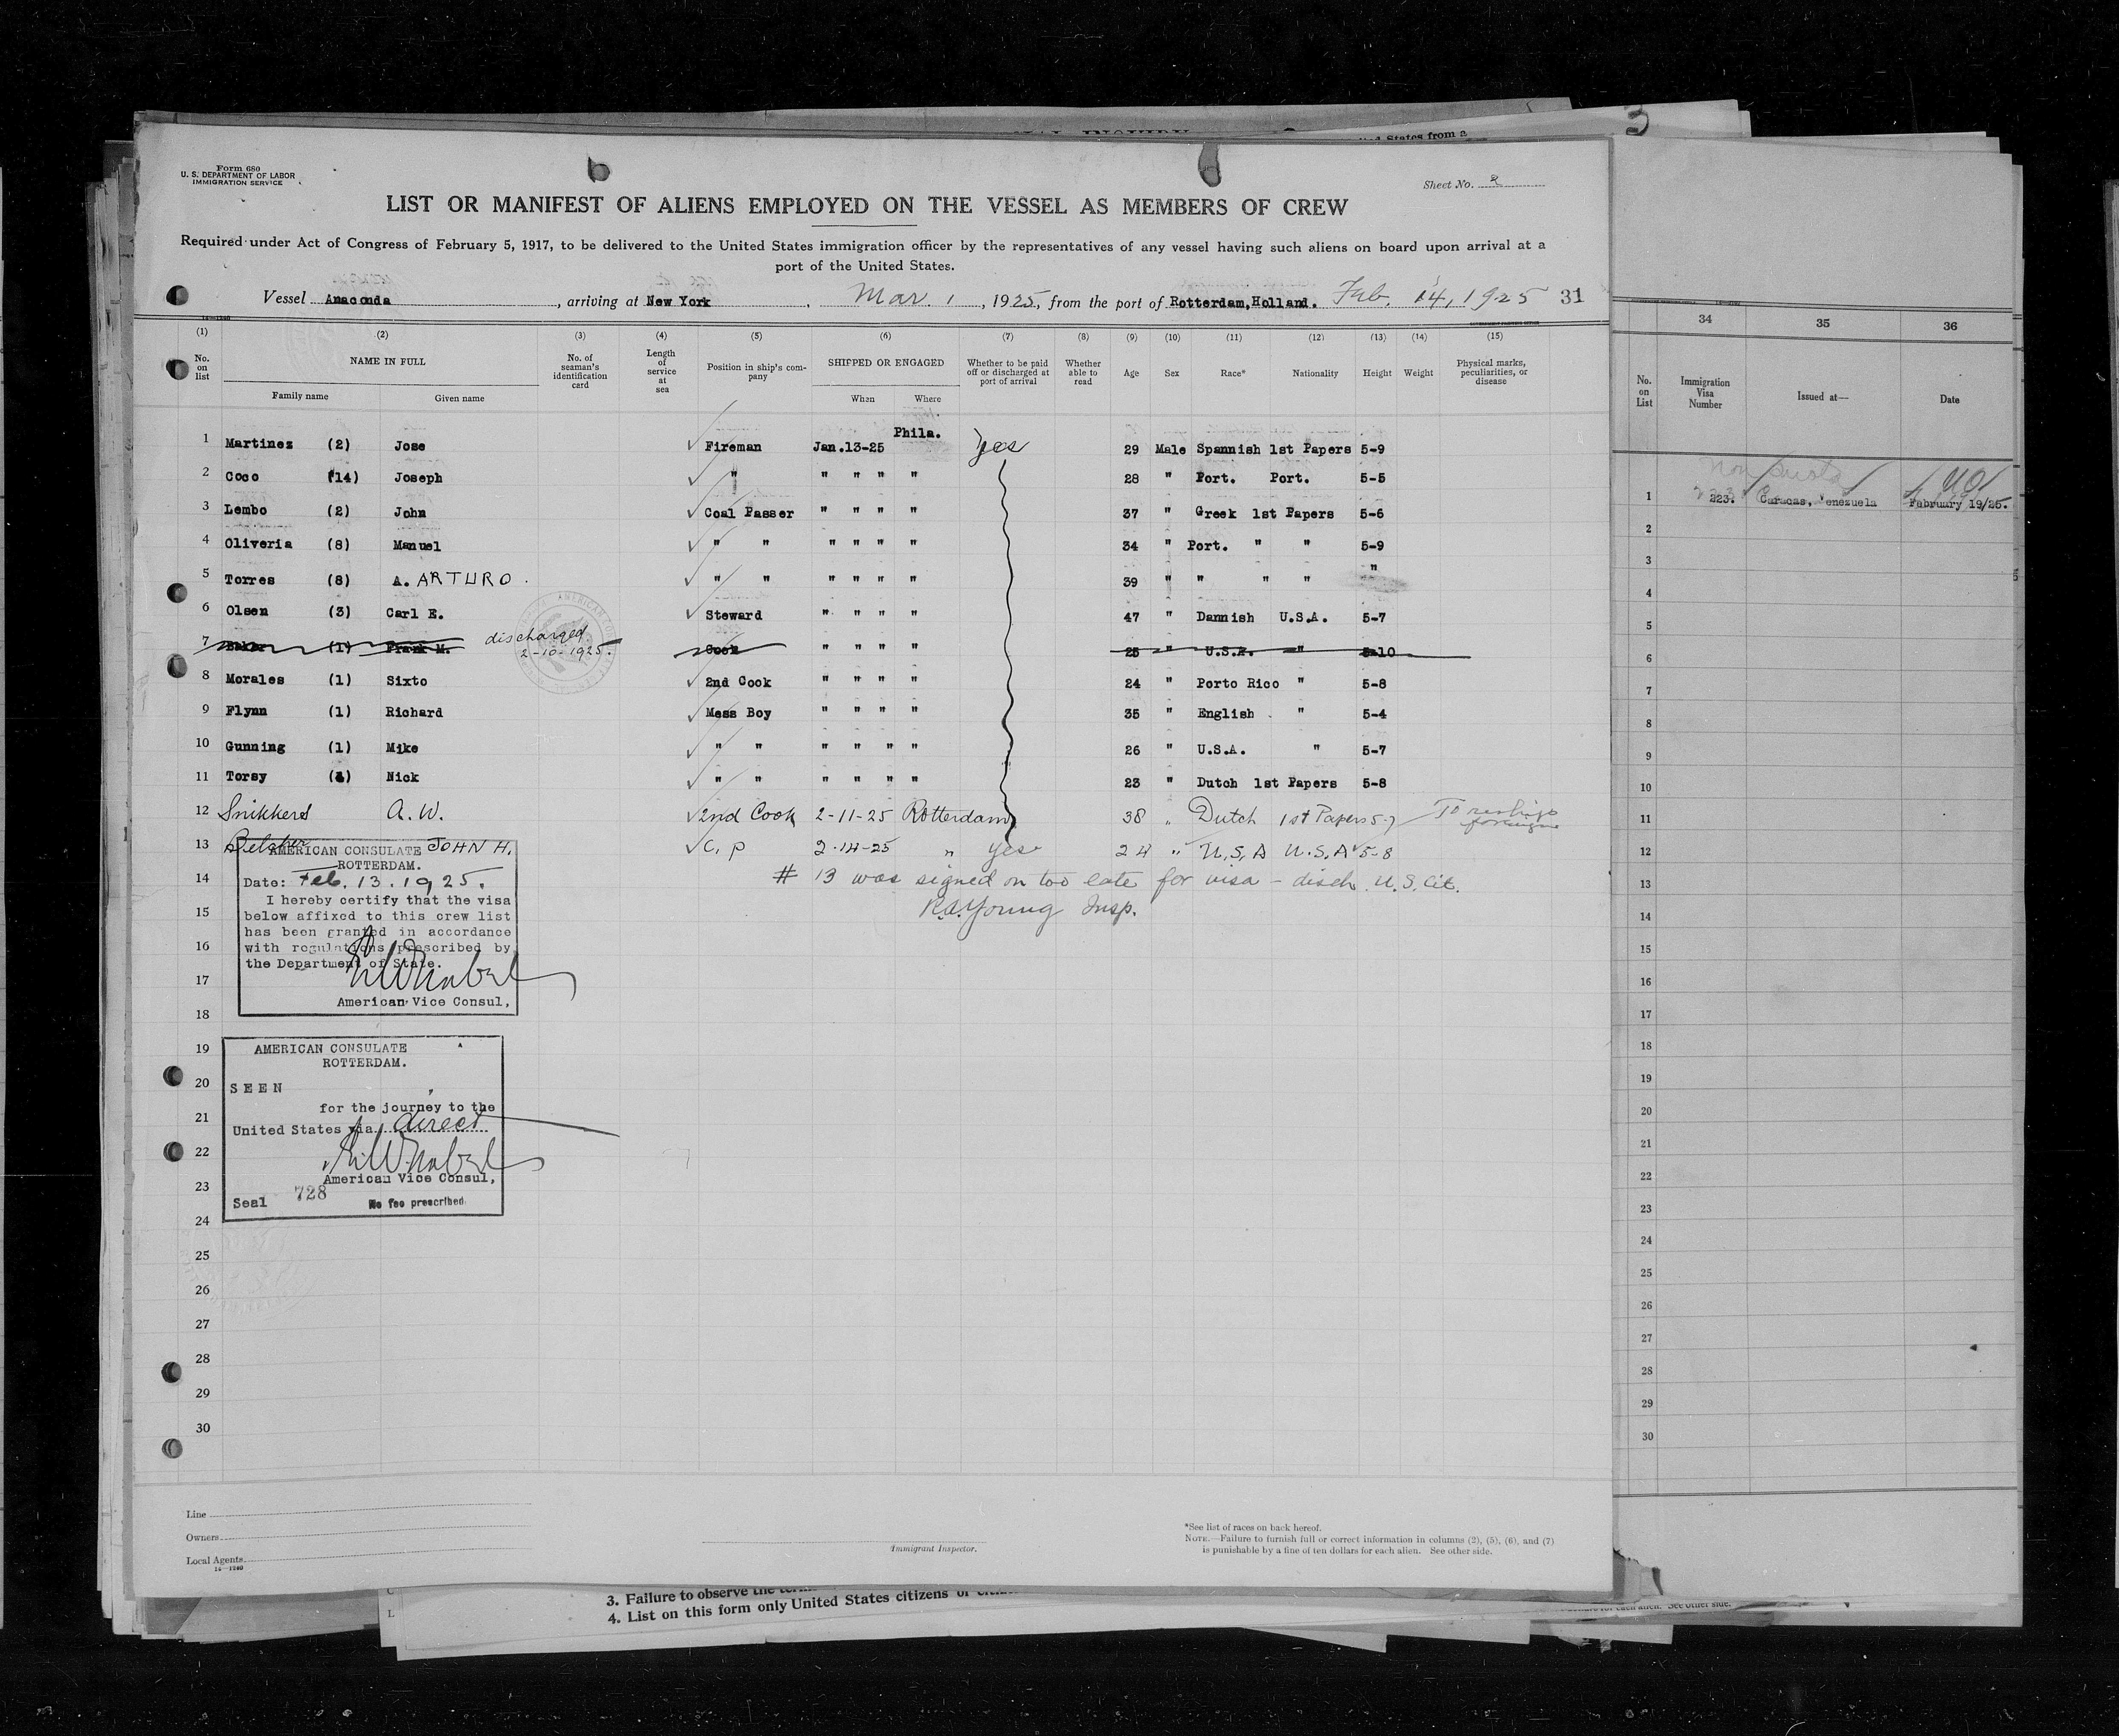 3
ted States from a
Form 680
U. S. DEPARTMENT OF LABOR
IMMIGRATION SERVICE
Sheet No. 2
LIST OR MANIFEST OF ALIENS EMPLOYED ON THE VESSEL AS MEMBERS OF CREW
Required under Act of Congress of February 5, 1917, to be delivered to the United States immigration officer by the representatives of any vessel having such aliens on board upon arrival at a
port of the United States.
Vessel Anaconda, arriving at New York, Mar. 1, 1925, from the port of Rotterdam,Holland. Feb. 14, 1925 31
(1) (2) (3) (4) (5) (6) (7) (8) (9) (10) (11) (12) (13) (14) (15)
No. on list NAME IN FULL No. of seaman's identification card Length of service at sea Position in ship's company SHIPPED OR ENGAGED Whether to be paid off or discharged at port of arrival Whether able to read Age Sex Race* Nationality Height Weight Physical marks, peculiarities, or disease
Family name Given name When Where
1 Martinez (2) Jose Fireman Jan.13-25 Phila. Yes 29 Male Spannish 1st Papers 5-9
2 Coco (14) Joseph " " " " " 28 " Port. Port. 5-5
3 Lembo (2) John Coal Passer " " " " 37 " Greek 1st Papers 5-6
4 Oliveria (8) Manuel " " " " " " 34 " Port. " " 5-9
5 Torres (8) A. ARTURO. " " " " " " 39 " " " " "
6 Olsen (3) Carl E. Steward " " " " 47 " Dannish U.S.A. 5-7
7 (1) Frank M. discharged 2-10-1925. Cook " " " " 25 " U.S.A. " 5-10
8 Morales (1) Sixto 2nd Cook " " " " 24 " Porto Rico " 5-8
9 Flynn (1) Richard Mess Boy " " " " 35 " English " 5-4
10 Gunning (1) Mike " " " " " " 26 " U.S.A. " 5-7
11 Torsy Nick " " " " " " 23 " Dutch 1st Papers 5-8
12 Snikkers A. W. 2nd Cook 2-11-25 Rotterdam 38 " Dutch 1st Papers 5-7 To reship foreign
13 Belcher JOHN H. C. P 2-14-25 " yes 24 " U.S.A U.S.A 5-8
14 # 13 was signed on too late for visa - disch. U.S. Cit.
15 R.A. Young Insp.
16
17
18
AMERICAN CONSULATE
ROTTERDAM.
Date: Feb. 13. 1925.
I hereby certify that the visa
below affixed to this crew list
has been granted in accordance
with regulations prescribed by
the Department of State.
American Vice Consul,
19
20
21
22
23
24
AMERICAN CONSULATE
ROTTERDAM.
SEEN
for the journey to the
United States via direct
American Vice Consul,
Seal 728 No fee prescribed.
25
26
27
28
29
30
Line
Owners
Local Agents
14-1240
Immigrant Inspector.
*See list of races on back hereof.
NOTE.—Failure to furnish full or correct information in columns (2), (5), (6), and (7)
is punishable by a fine of ten dollars for each alien. See other side.
34 35 36
No. on List Immigration Visa Number Issued at— Date
1 223. Caracas, Venezuela February 19/25.
2
3
4
5
6
7
8
9
10
11
12
13
14
15
16
17
18
19
20
21
22
23
24
25
26
27
28
29
30
3. Failure to observe the
4. List on this form only United States citizens or
See other side.